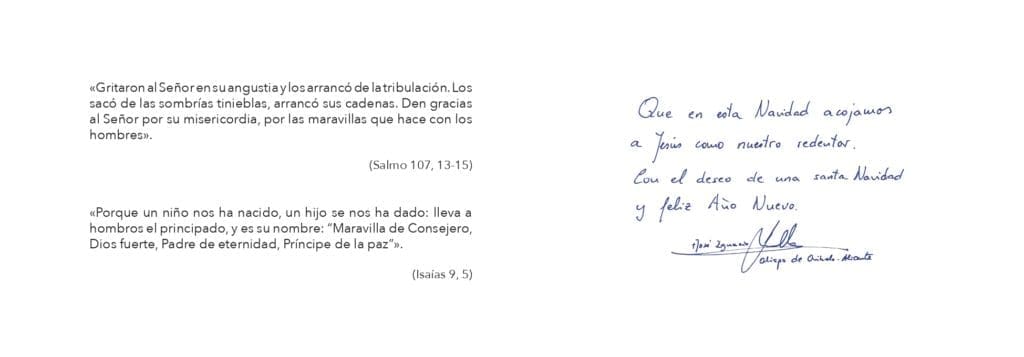 «Gritaron al Señor en su angustia y los arrancó de la tribulación. Los
sacó de las sombrías tinieblas, arrancó sus cadenas. Den gracias
al Señor por su misericordia, por las maravillas que hace con los
hombres».
(Salmo 107, 13-15)
«Porque un niño nos ha nacido, un hijo se nos ha dado: lleva a
hombros el principado, y es su nombre: “Maravilla de Consejero,
Dios fuerte, Padre de eternidad, Príncipe de la paz”».
(Isaías 9, 5)
Que en esta Navidad acojamos
a Jesús como nuestro redentor.
Con el deseo de una santa Navidad
y feliz Año Nuevo.
José Ignacio
Obispo de Orihuela-Alicante